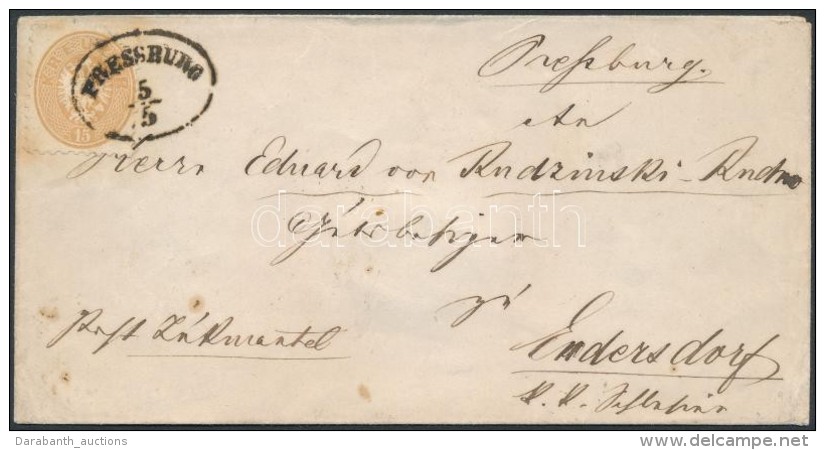 PRESSBURG
5/5
15
Preßburg.
An
Herrn Eduard von Rudzinski-Rudno
Gutsbesitzer
zu
Endersdorf
Post Zukmantel
K. K. Schlesien
darabanth
Darabanth_auctions
www.delcampe.net